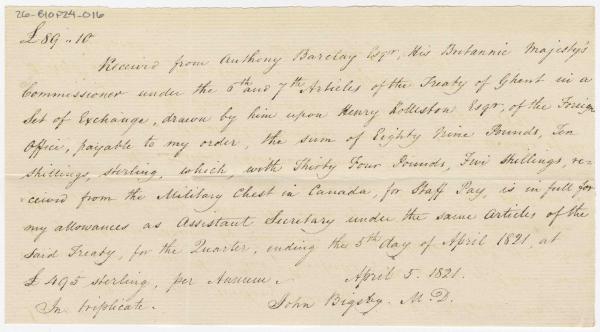 26-B10F24-016
£89 „ 10
Received from Anthony Barclay Esqr, His Britannic Majesty's
Commissioner under the 6th and 7th Articles of the Treaty of Ghent in a
Set of Exchange, drawn by him upon Henry Rolleston Esqr, of the Foreign
Office, payable to my order, the sum of Eighty Nine Pounds, Ten
shillings, sterling, which, with Thirty Four Pounds, Five shillings, re-
ceived from the Military Chest in Canada, for Staff Pay, is in full for
my allowances as Assistant Secretary under the same Articles of the
said Treaty, for the Quarter, ending the 5th day of April 1821, at
£ 495 sterling, per Annum. April 5. 1821.
In triplicate. John Bigsby. M.D.